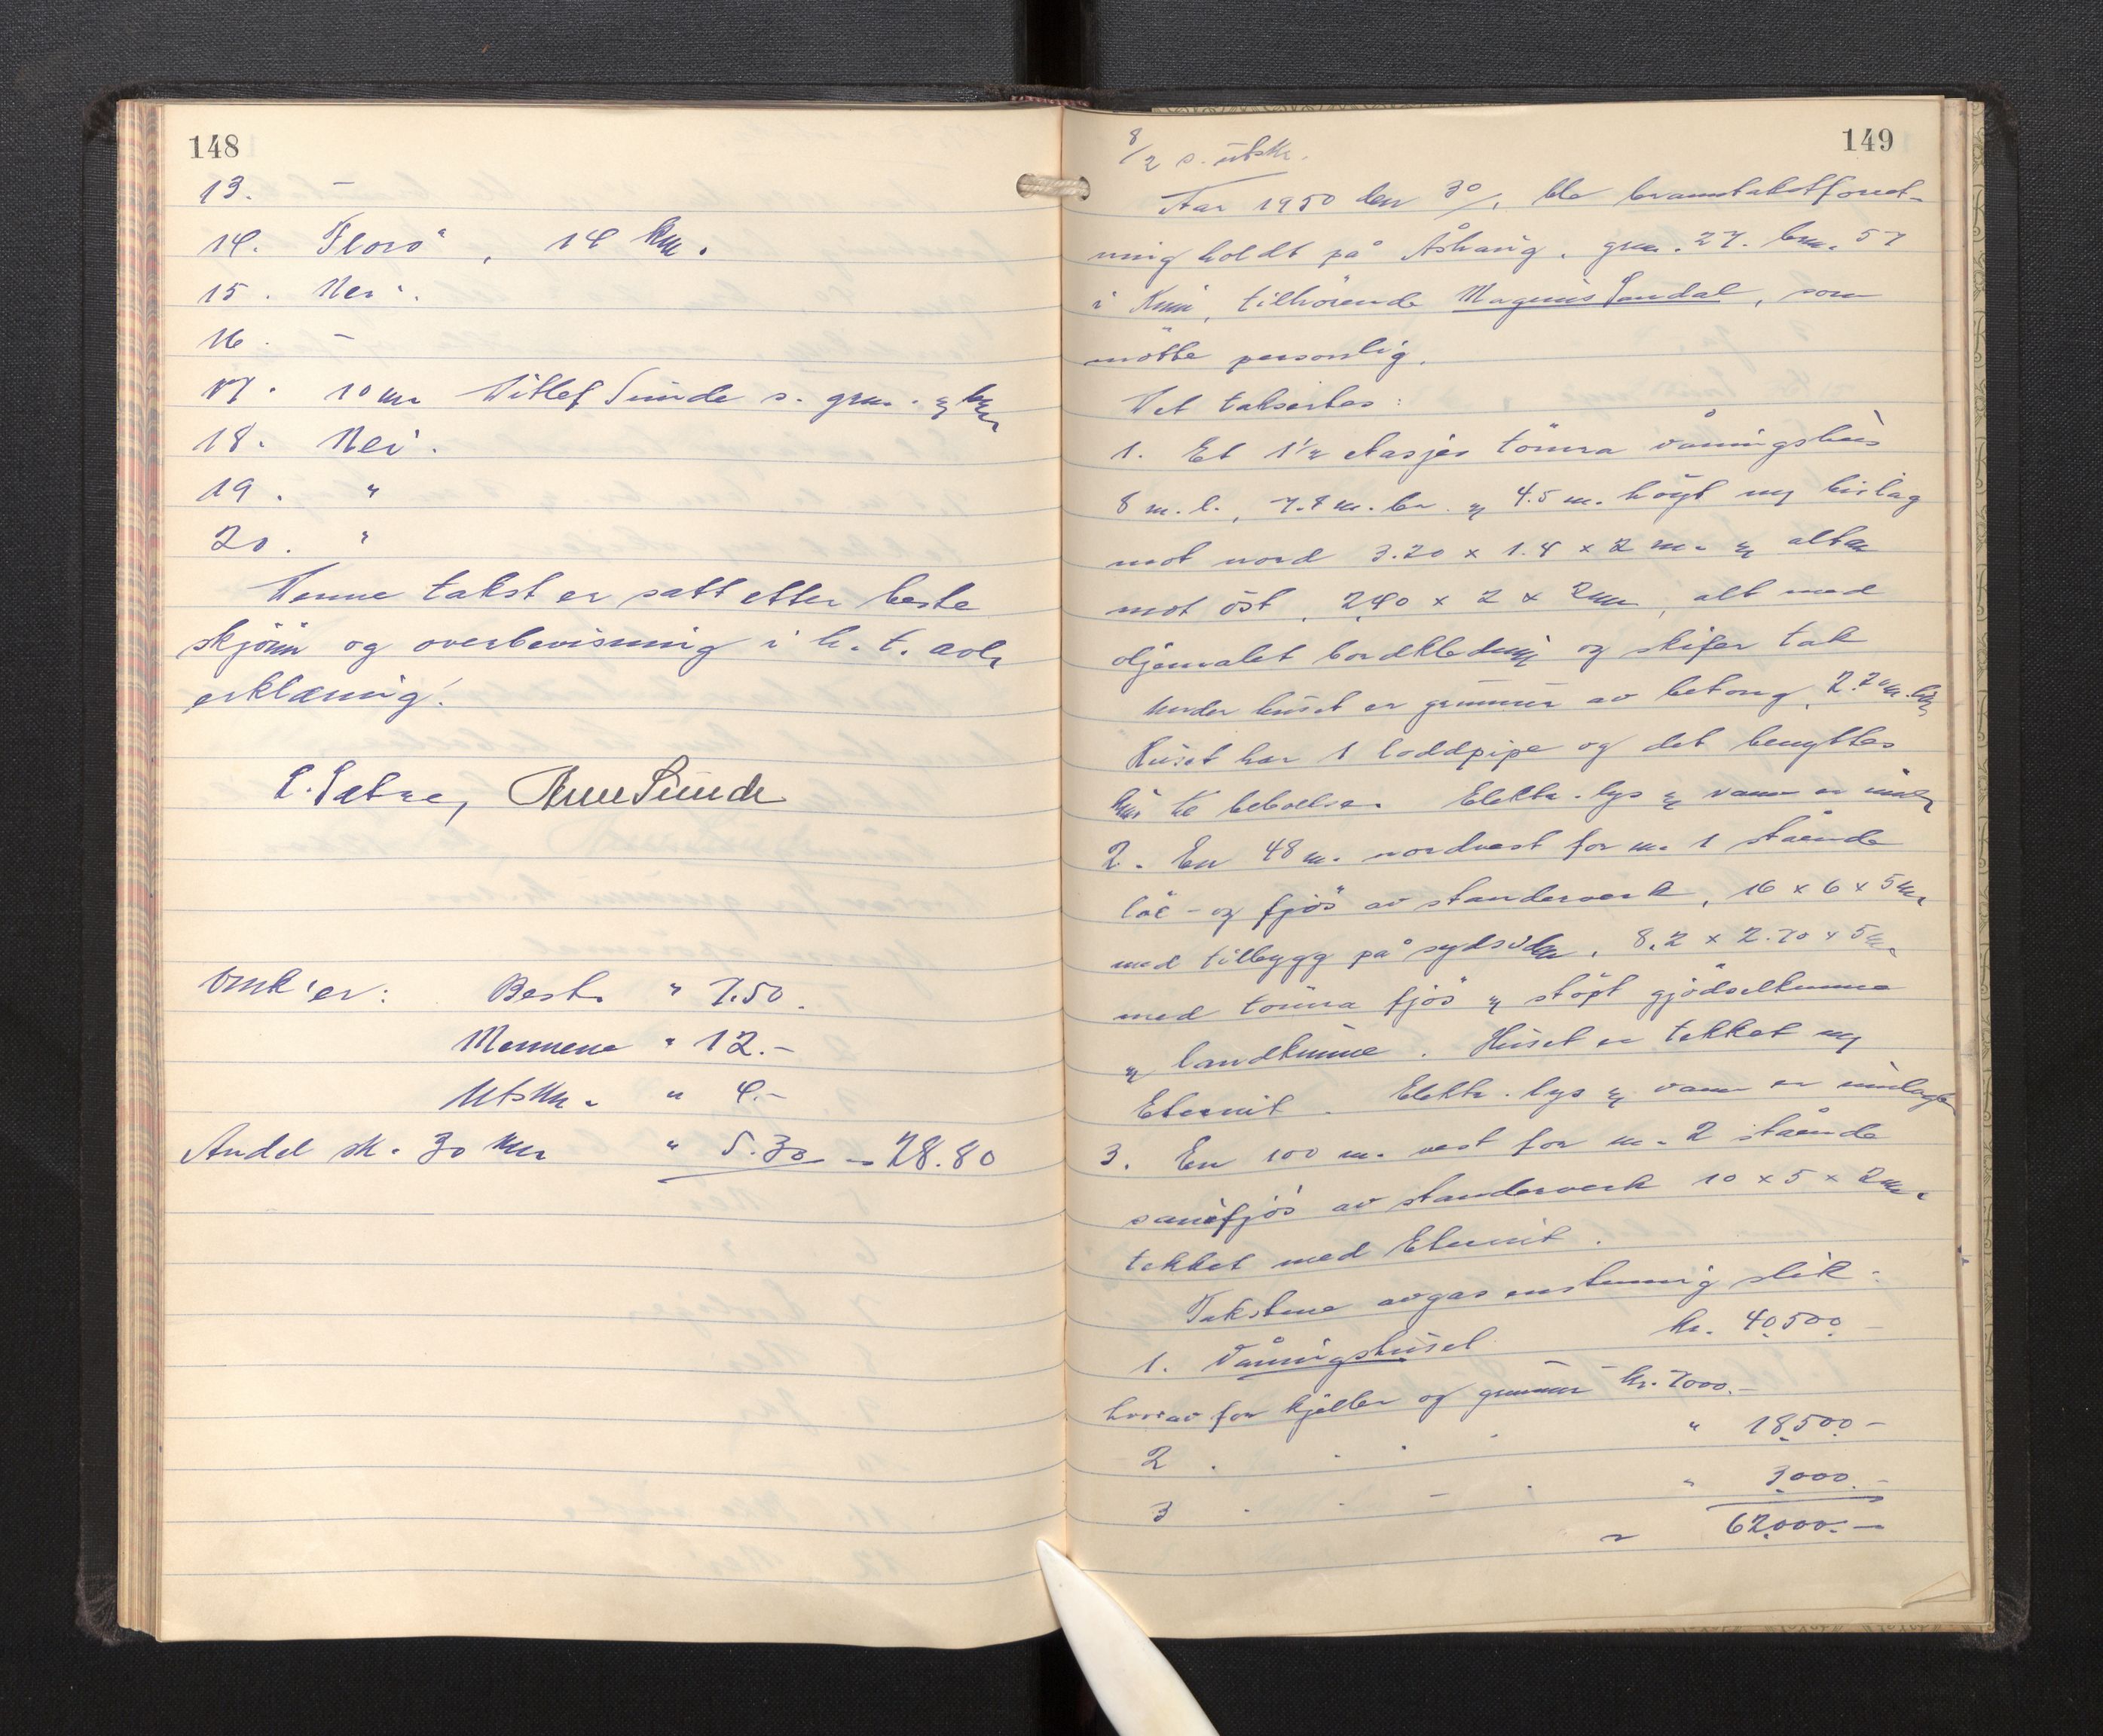 148
13. –
14. Florö, 14 km.
15. Nei.
16. –
17. 10 m Ditlef Sunde s. grm. & brm
18. Nei.
19. "
20. "
Denne takst er satt etter beste
skjönn og overbevisning i h. t. avl.
erklæring.
L. Sætre, Arne Sunde
Omk'er: Best. " 7.50.
Mennene " 12.–
Utskr. " 4.–
Andel sk. 30 km " 5.30 – 28.80
149
8/2 s. utskr.
Aar 1950 den 30/1 ble branntakstforret-
ning holdt på Åshaug, grn. 27. brn. 57
i Kinn, tilhörende Magnus Sandal, som
mötte personlig.
Det takseres:
1. Et 1½ etasjes tömra våningshus
8 m. l., 7.8 m. br. & 4.5 m. höyt m/ bislag
mot nord 3.20 x 1.4 x 2 m. & altan
mot öst, 2,40 x 2 x 2 m, alt med
oljemalet bordkledning og skifer tak
Under huset er grunnmur av betong, 2.20 m. hög
Huset har 1 loddpipe og det benyttes
kun til beboelse. Elektr. lys & vann er innl.
2. En 48 m. nordvest for nr. 1 stående
löe- og fjös av standerverk, 16 x 6 x 5 m.
med tilbygg på sydsiden, 8,2 x 2.70 x 5 m.
med tömra fjös & stöpt gjödselkumme
& landkumme. Huset er tekket m/
Eternit. Elektr. lys & vann er innlagt
3. En 100 m. vest for nr. 2 stående
sauefjös av standerverk 10 x 5 x 2 m.
tekket med Eternit.
Takstene avgas enstemmig slik:
1. Våningshuset kr. 40,500.–
hvorav for kjeller og grunnmur kr. 7000.–
2 . . . . " 18,500.–
3 . . . . " 3.000.–
62.000.–